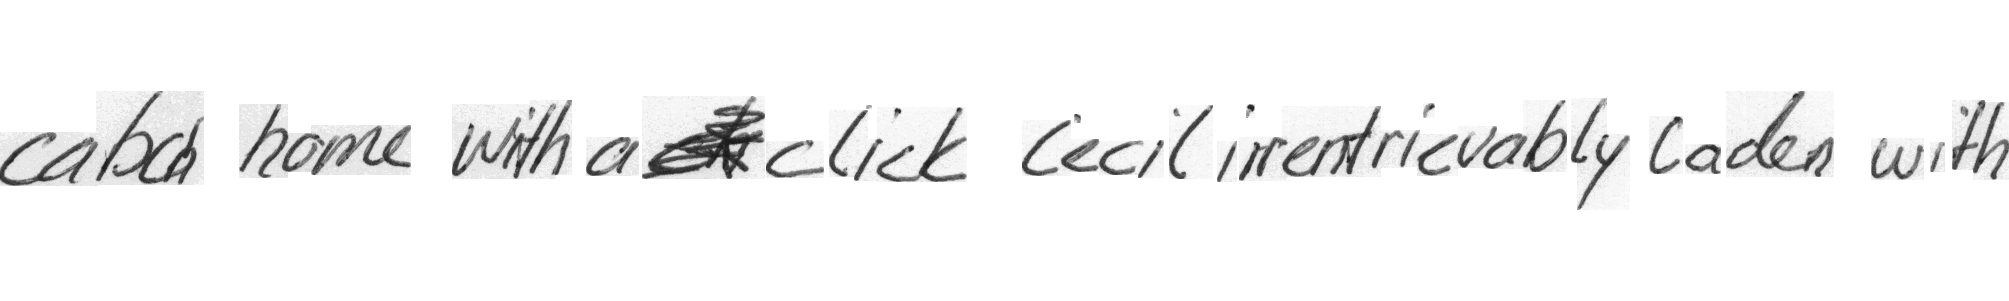 home with a click Cecil irrentrievably laden with